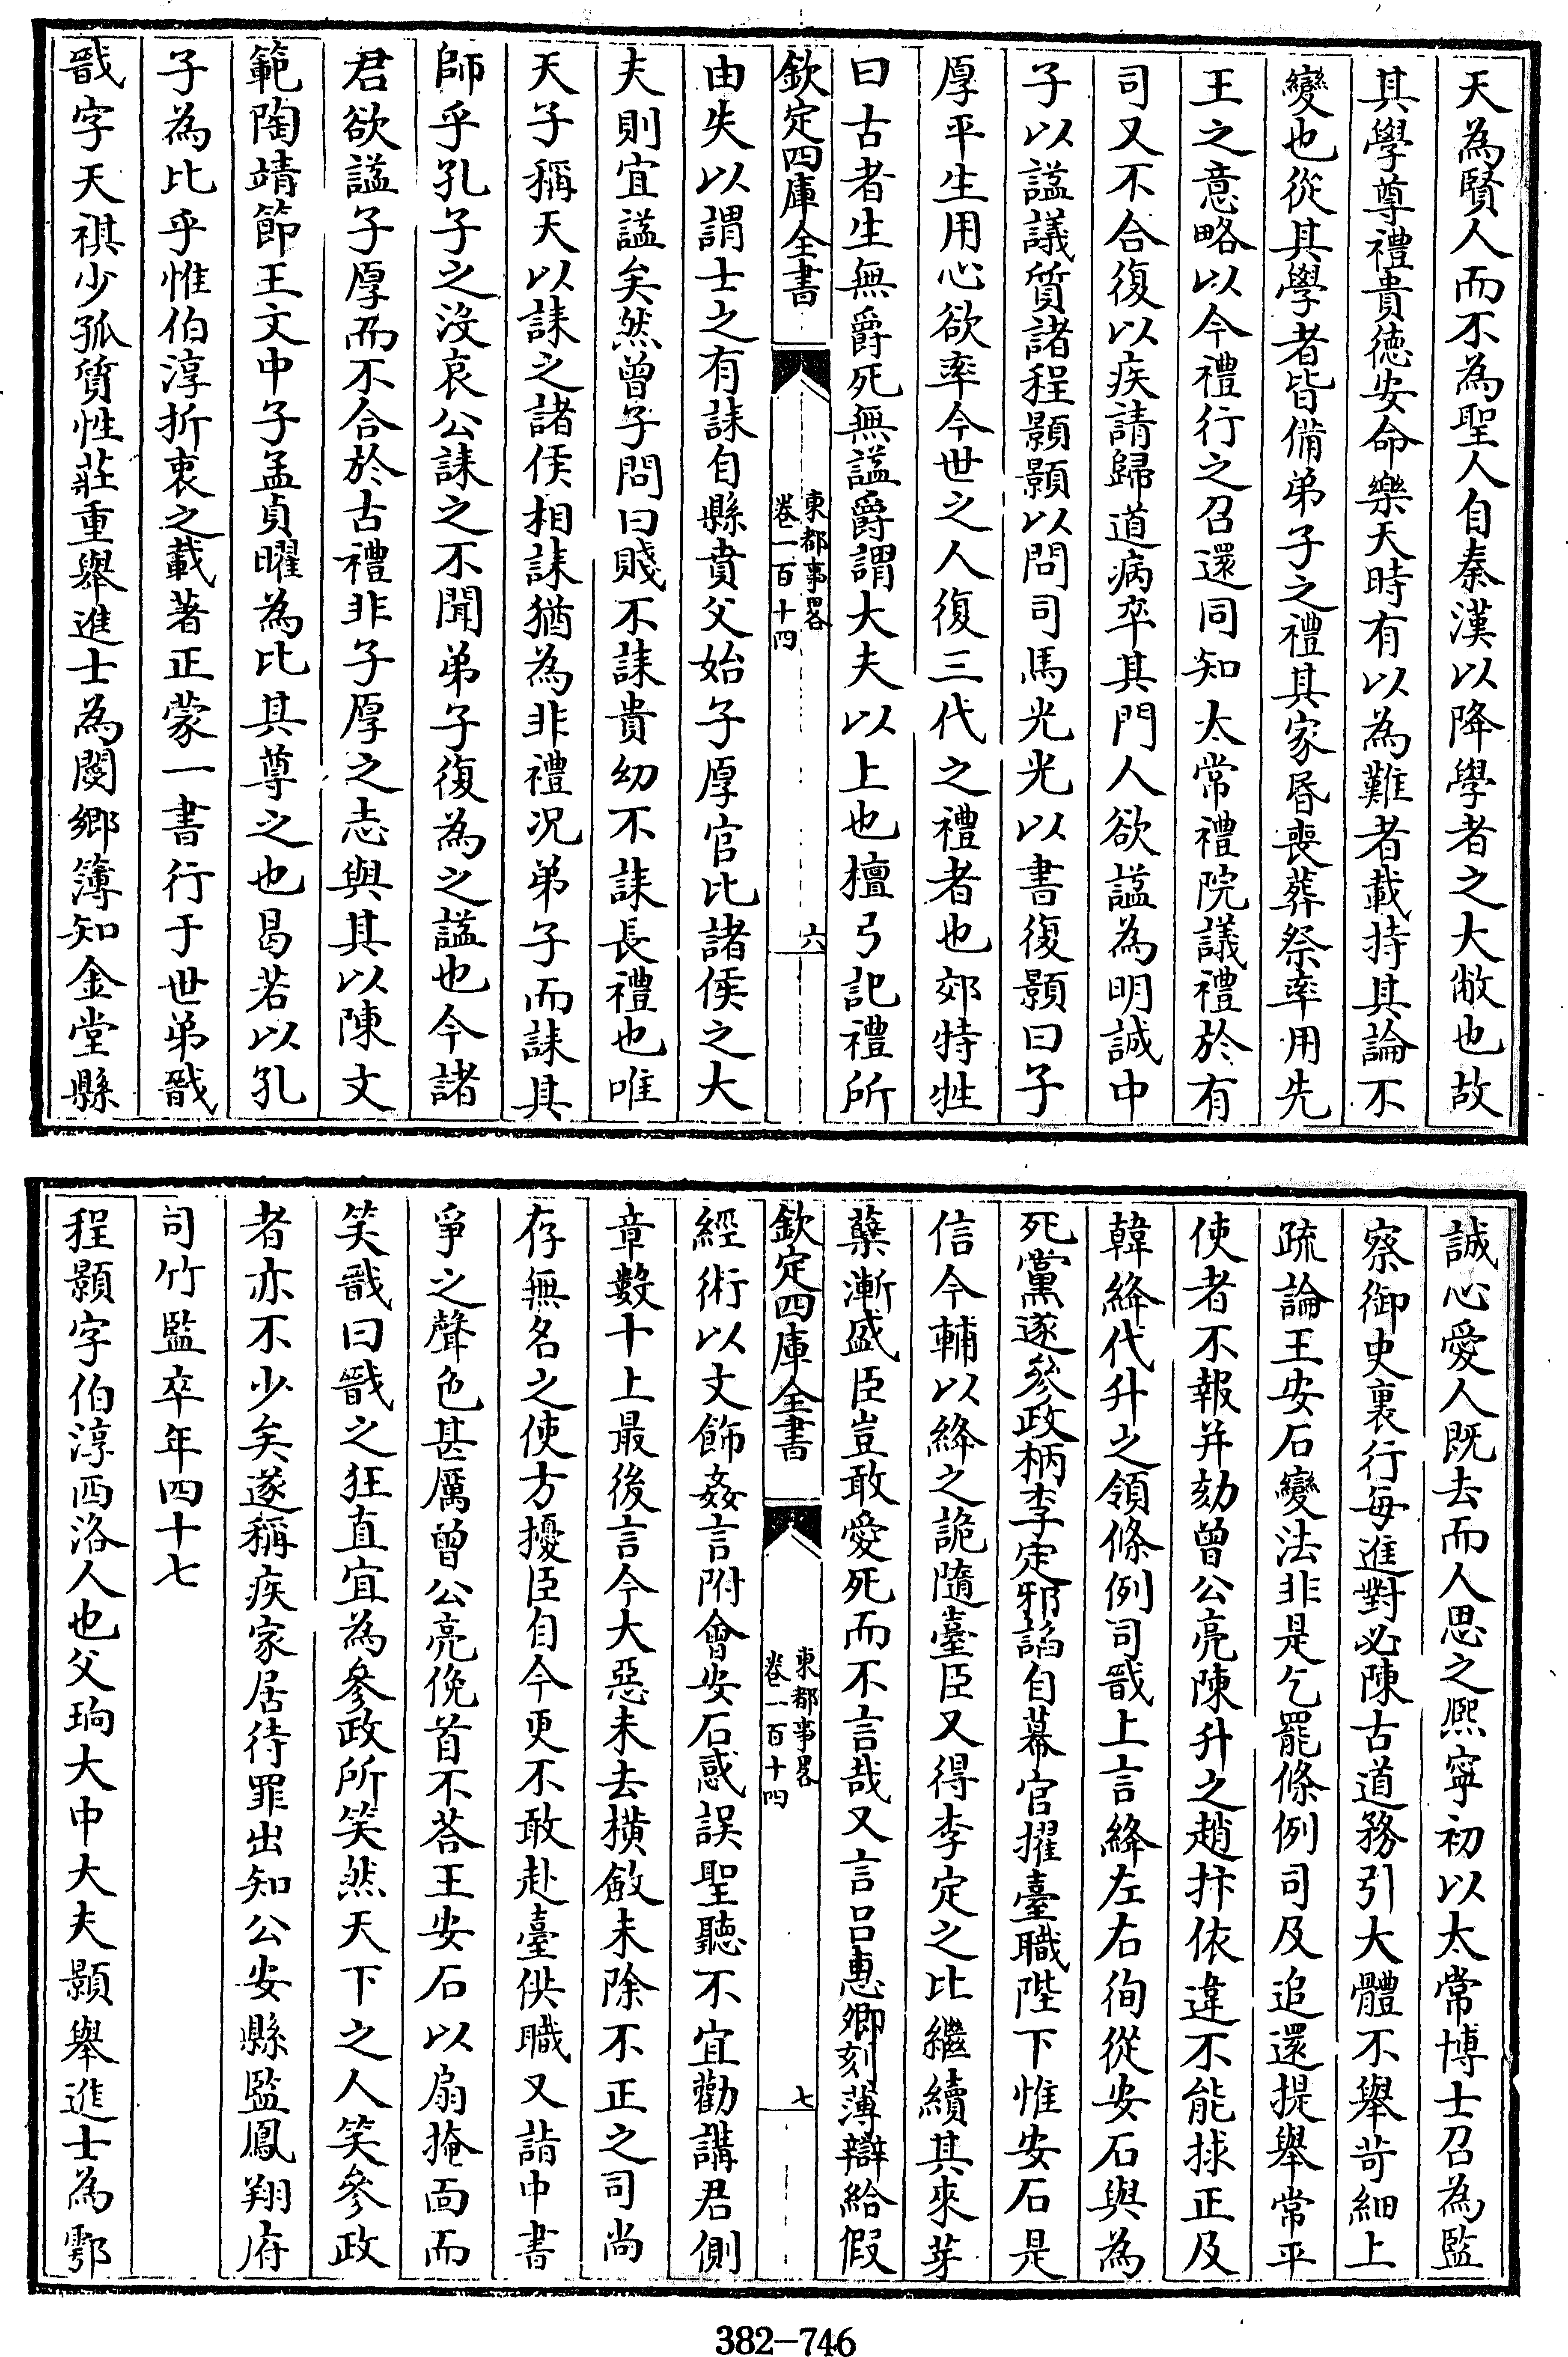 天為賢人而不為聖人自秦漢以降學者之大敝也故
其學尊禮貴徳安命樂天時有以為難者載持其論不
變也從其學者皆備弟子之禮其家昬喪葬祭率用先
王之意略以今禮行之召還同知太常禮院議禮於有
司又不合復以疾請歸道病卒其門人欲諡為明誠中
子以諡議質諸程顥顥以問司馬光光以書復顥曰子
厚平生用心欲率今世之人復三代之禮者也郊特牲
曰古者生無爵死無諡爵謂大夫以上也檀弓記禮所
欽定四庫全書
東都事畧
卷一百十四
六
由失以謂士之有誄自縣賁父始子厚官比諸侯之大
夫則宜諡矣然曾子問曰賤不誄貴幼不誄長禮也唯
天子稱天以誄之諸侯相誄猶為非禮况弟子而誄其
師乎孔子之沒哀公誄之不聞弟子復為之諡也今諸
君欲諡子厚而不合於古禮非子厚之志與其以陳文
範陶靖節王文中子孟貞曜為比其尊之也曷若以孔
子為比乎惟伯淳折衷之載著正蒙一書行于世弟戩
戩字天祺少孤質性莊重舉進士為閿鄉簿知金堂縣
誠心愛人既去而人思之熈寧初以太常博士召為監
察御史裏行每進對必陳古道務引大體不舉苛細上
疏論王安石變法非是乞罷條例司及追還提舉常平
使者不報并劾曾公亮陳升之趙抃依違不能捄正及
韓絳代升之領條例司戩上言絳左右徇從安石與為
死黨遂參政柄李定邪諂自幕官擢臺職陛下惟安石是
信今輔以絳之詭隨臺臣又得李定之比繼續其來芽
蘖漸盛臣豈敢愛死而不言哉又言呂惠卿刻薄辯給假
欽定四庫全書
東都事畧
卷一百十四
七
經術以文飾姦言附會安石惑誤聖聽不宜勸講君側
章數十上最後言今大惡未去橫斂未除不正之司尚
存無名之使方擾臣自今更不敢赴臺供職又詣中書
爭之聲色甚厲曾公亮俛首不荅王安石以扇掩面而
笑戩曰戩之狂直宜為參政所笑然天下之人笑參政
者亦不少矣遂稱疾家居待罪出知公安縣監鳳翔府
司竹監卒年四十七
程顥字伯淳西洛人也父珦大中大夫顥舉進士為鄠
382-746